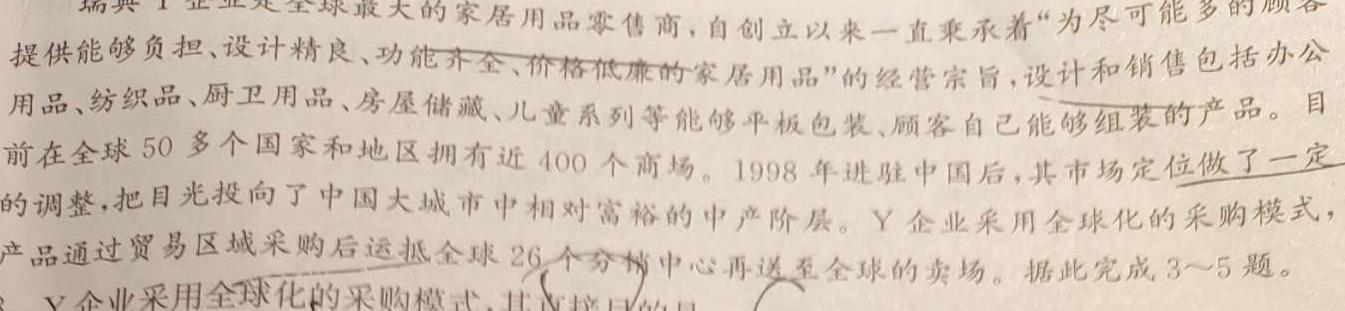 瑞典 Y 企业是全球最大的家居用品零售商,自创立以来一直秉承着“为尽可能多的顾客
提供能够负担、设计精良、功能齐全、价格低廉的家居用品”的经营宗旨,设计和销售包括办公
用品、纺织品、厨卫用品、房屋储藏、儿童系列等能够平板包装、顾客自己能够组装的产品。目
前在全球 50 多个国家和地区拥有近 400 个商场。1998 年进驻中国后,其市场定位做了一定
的调整,把目光投向了中国大城市中相对富裕的中产阶层。Y 企业采用全球化的采购模式,
产品通过贸易区域采购后运抵全球 26 个分销中心再送至全球的卖场。据此完成 3～5 题。
Y 企业采用全球化的采购模式,其直接目的是